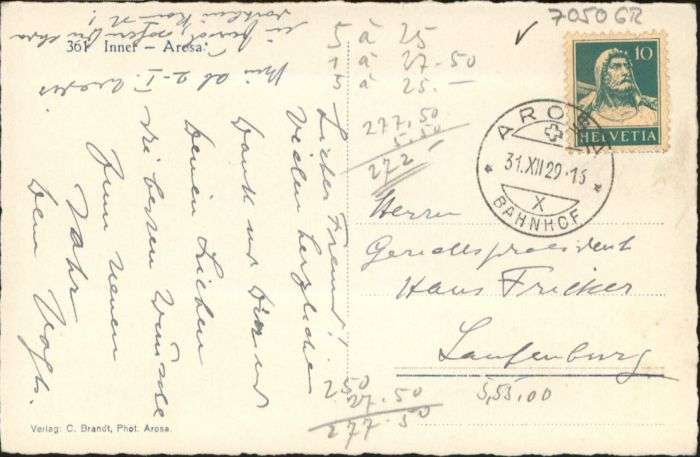 7050 GR
361 Inner - Arosa.
10
HELVETIA
AROSA
31.XII 29-13
X
BAHNHOF
5 à 25
1 à 27.50
5 à 25.-
277.50
5.50
272
Lieber Freund!
Vielen herzlichen
Dank und Dir und
Deinen Lieben
die besten Wünsche
zum neuen
Jahr
Dein Vogt.
Herrn
Gerichtspraesident
Hans Fricker
Laufenburg
250
27.50
277.50
5,55.00
Verlag: C. Brandt, Phot. Arosa.